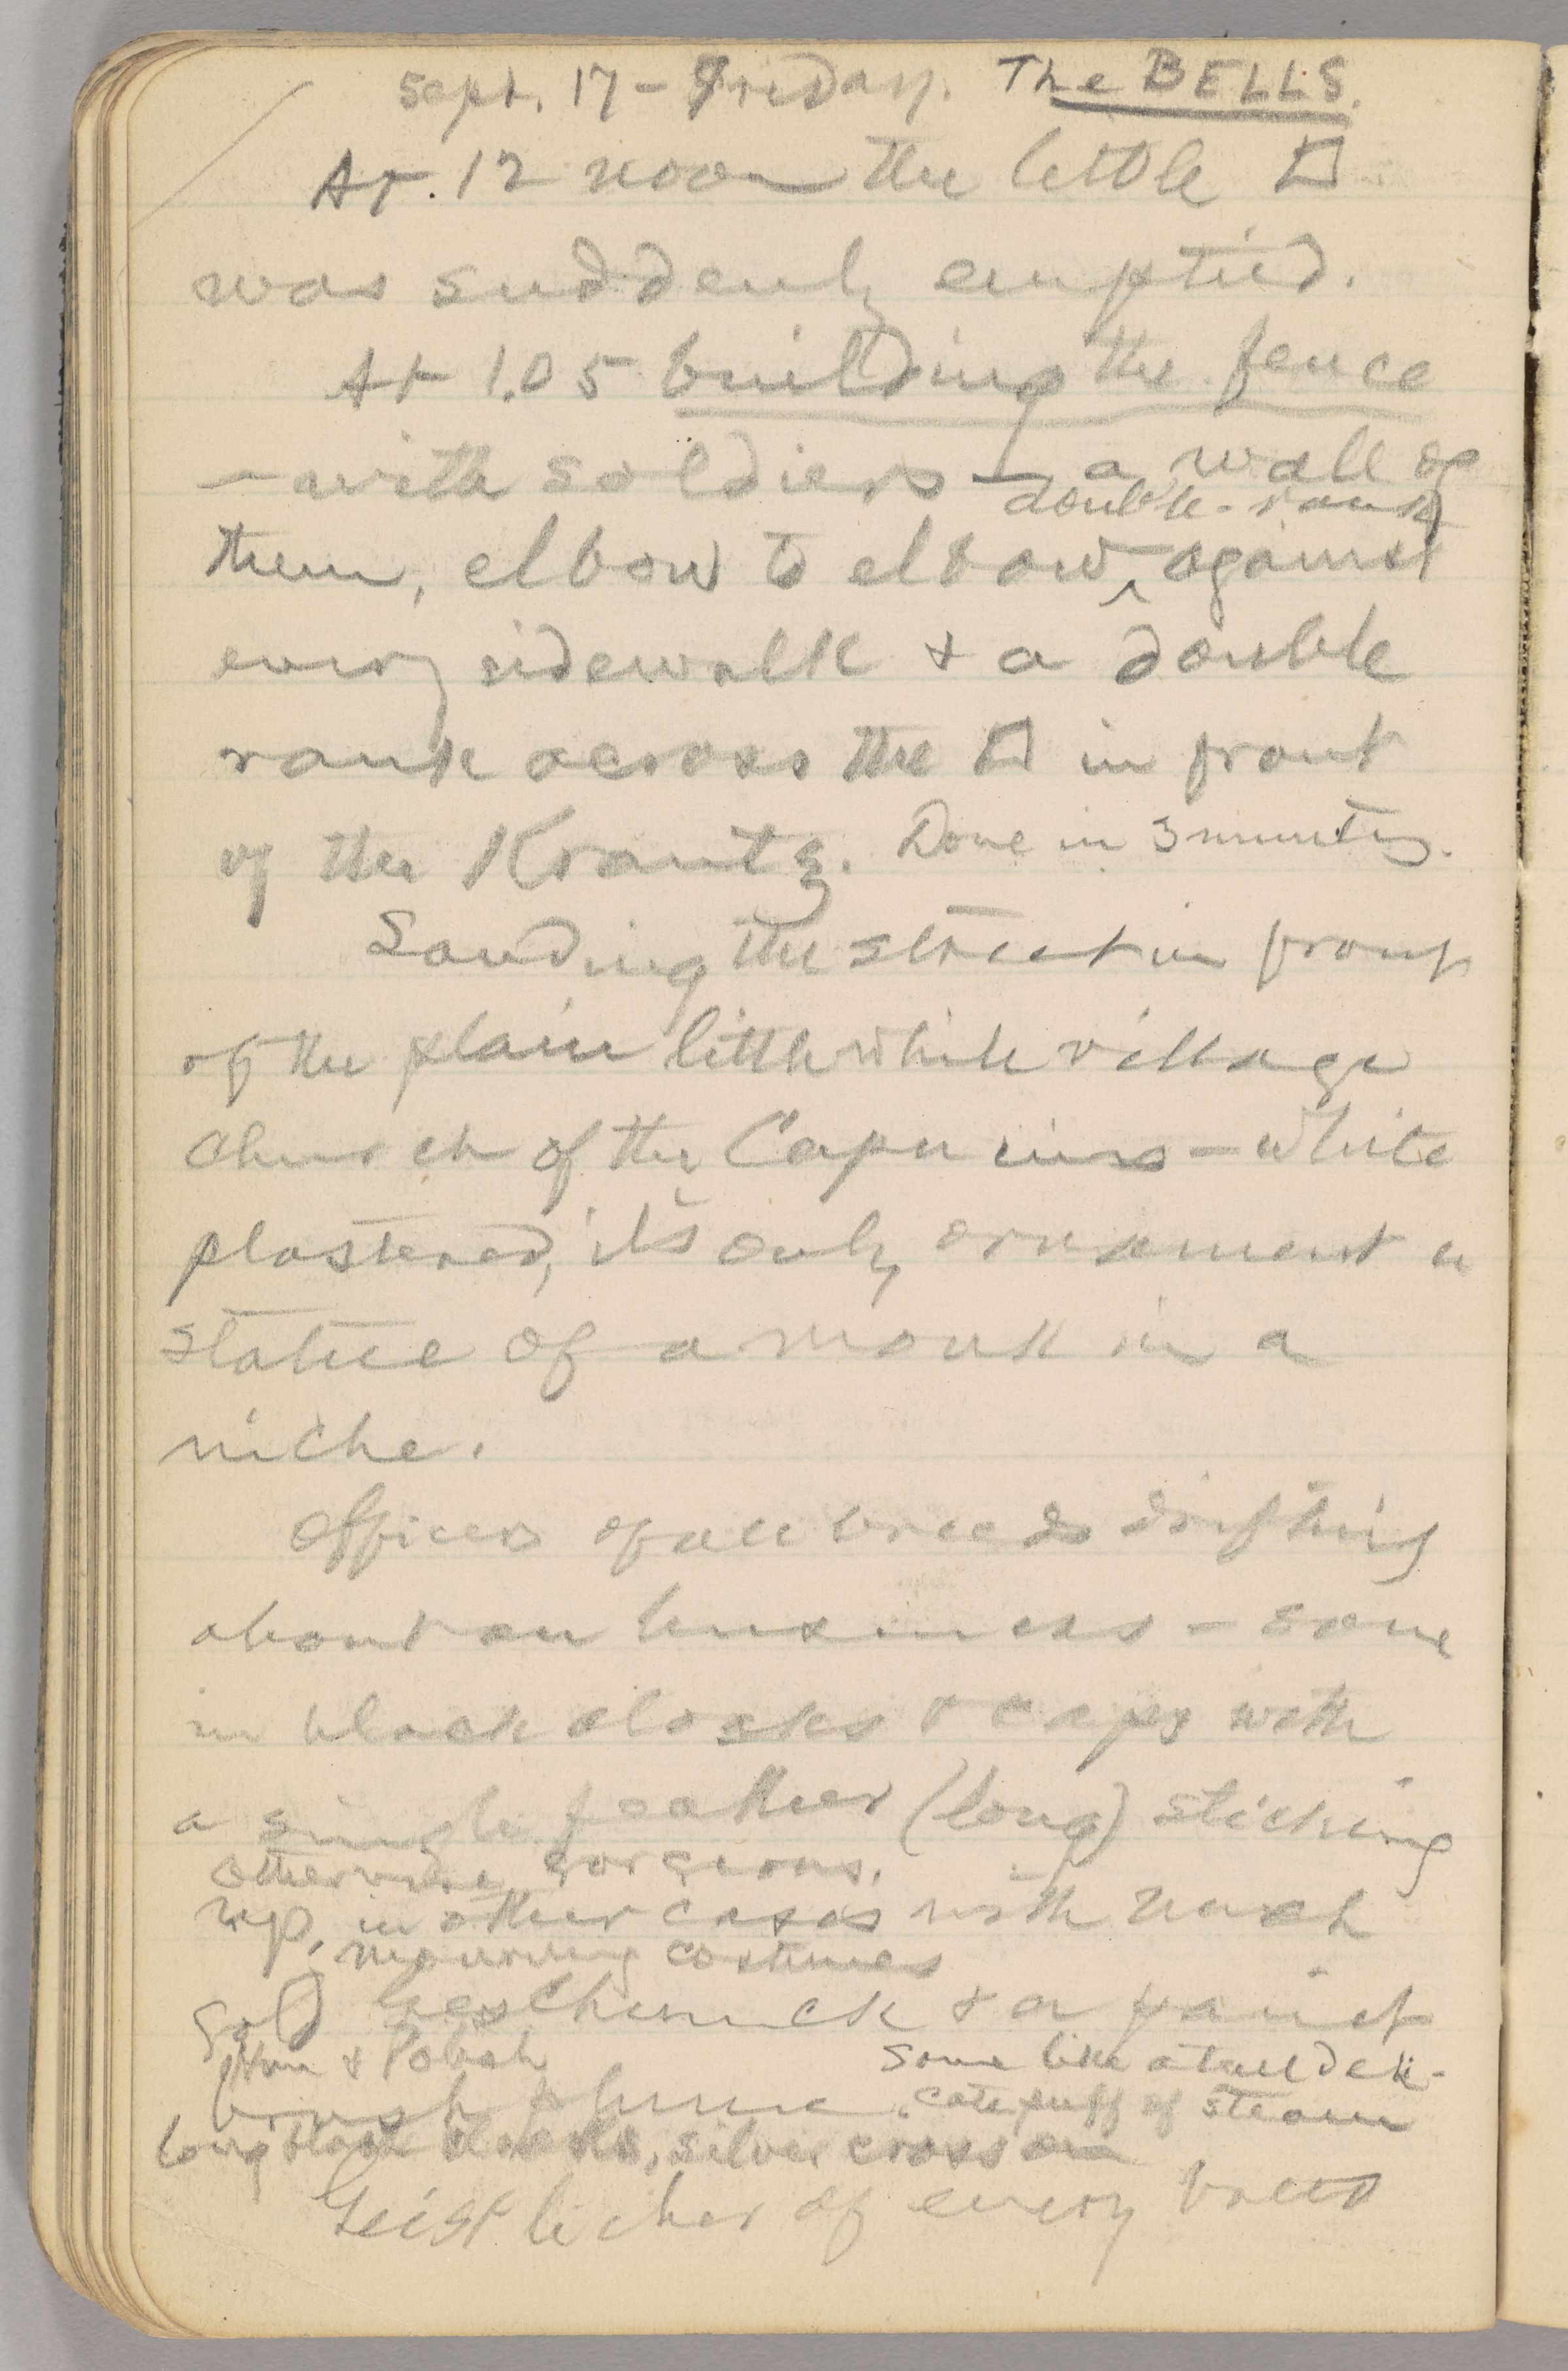 Sept. 17 – Friday. The BELLS.
At 12 noon the little □
was suddenly emptied.
At 1.05 building the fence
– with soldiers – a wall of
double-rank
them, elbow to elbow ^ against
every sidewalk & a double
rank across the □ in front
of the Krantz. Done in 3 minutes.
Sanding the street in front
of the plain little white village
church of the Capucins – white
plastered, it's only ornament a
statue of a monk in a
niche.
Officers of all breeds drifting
about on business – some
in black cloaks & caps with
a single feather (long) sticking
otherwise gorgeous.
up, in other cases with much
mourning costumes
gold geschmuck & a paint
Hun & Polish
some like a tall deli-
brush plume.
cate puff of steam
long black cloaks, silver cross on
Geistlicher of every breed